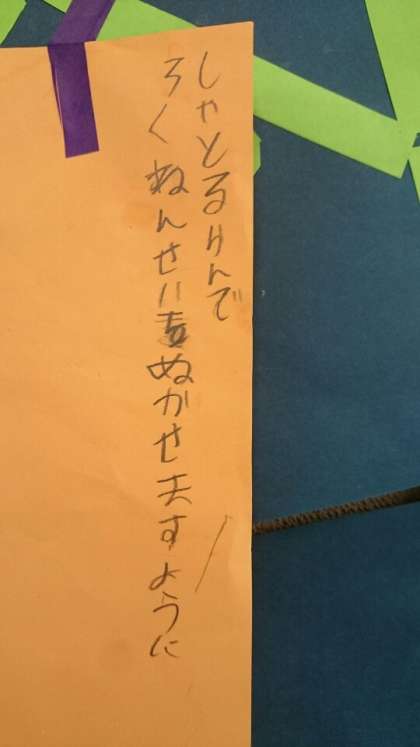 しゃとるらんで
ろくねんせいをぬかせますように